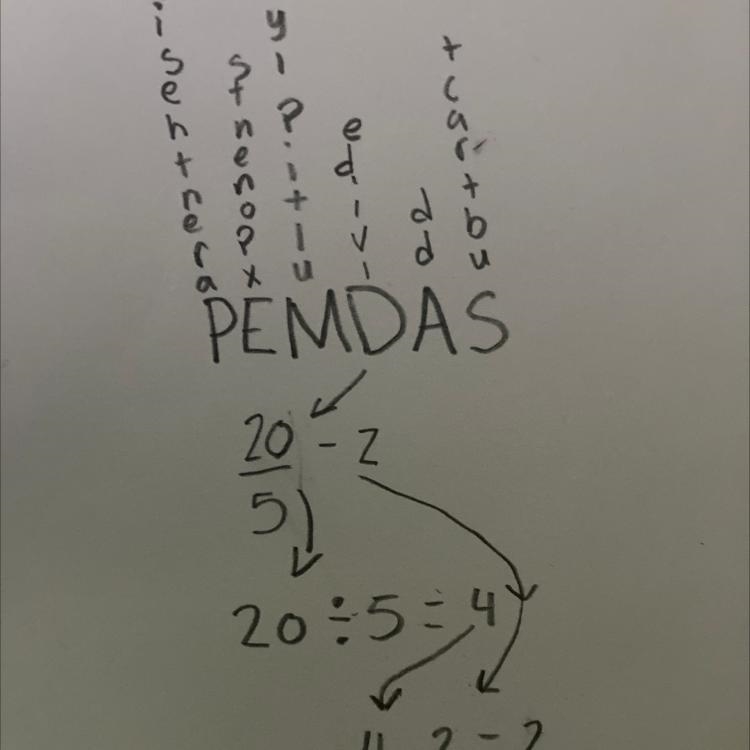 Parenthesi
Exponents
Multiply
Divide
Add
Subtract
20 - 2
5
20 ÷ 5 = 4